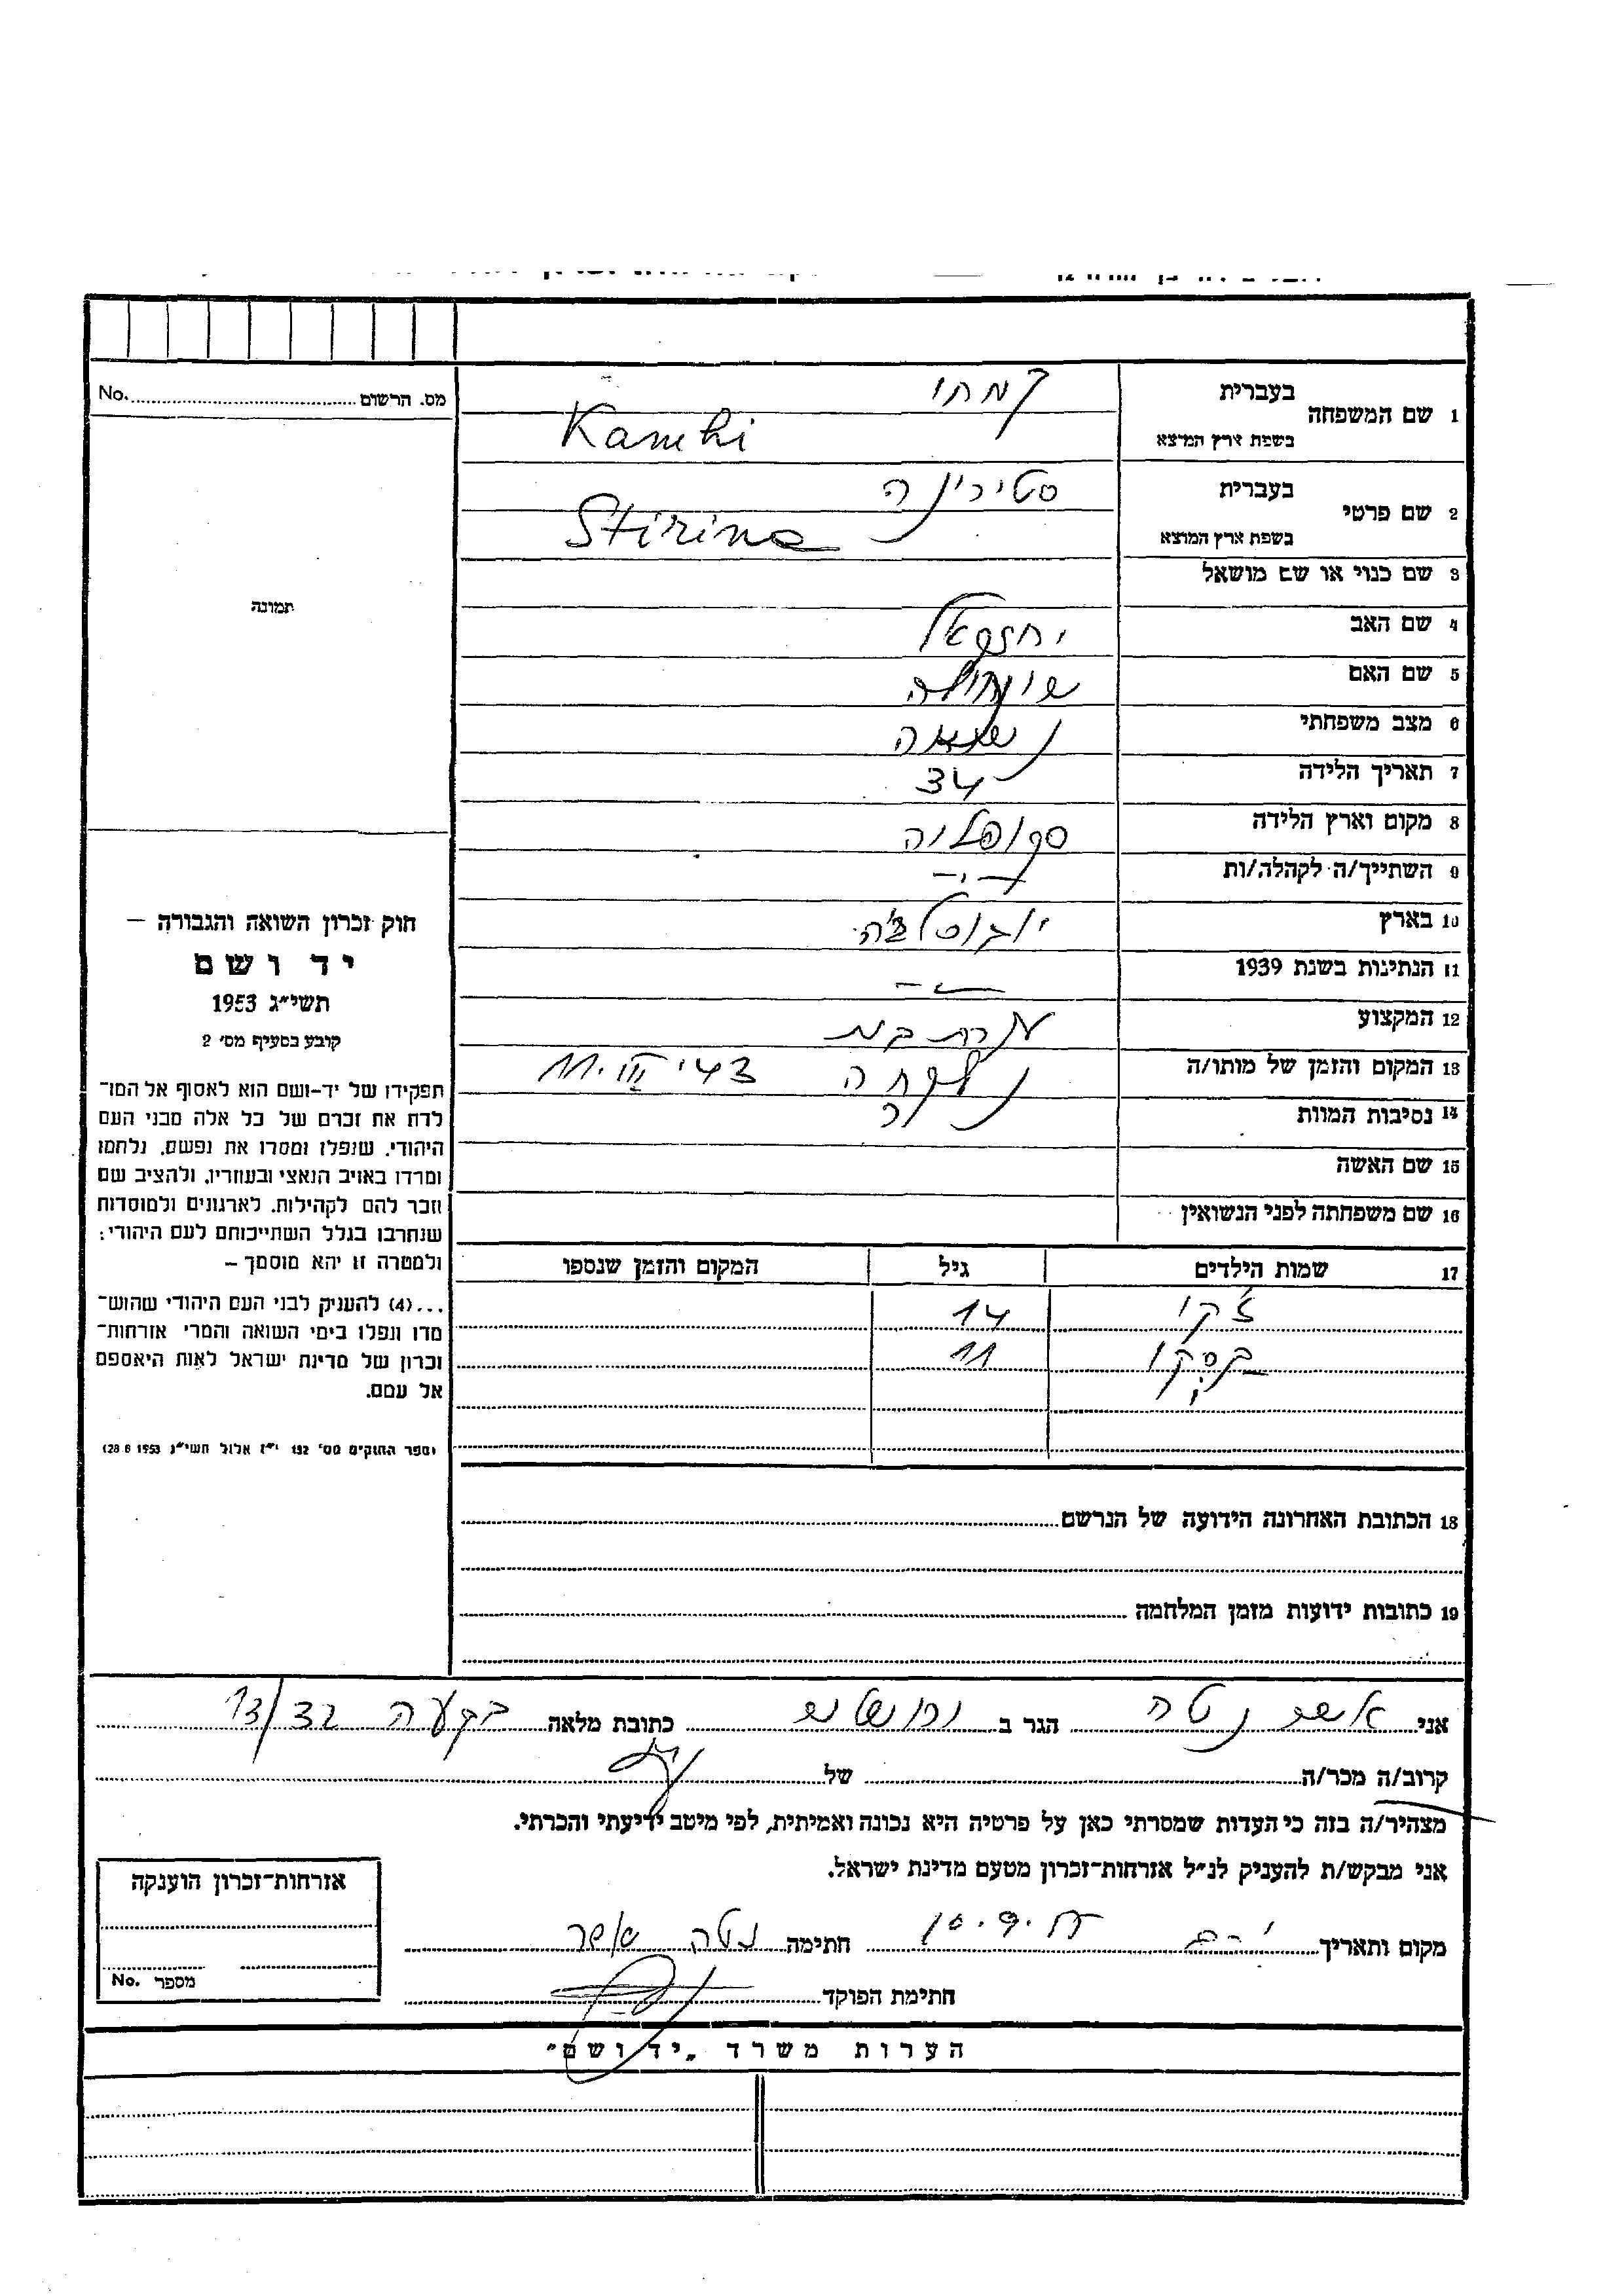 בעברית
קמחי
1 שם המשפחה
בשפת ארץ המוצא
Kamhi
בעברית
סטירינה
2 שם פרטי
בשפת ארץ המוצא
Stirina
3 שם כנוי או שם מושאל
4 שם האב יחזקאל
5 שם האם
6 מצב משפחתי נשואה
7 תאריך הלידה 34
8 מקום וארץ הלידה סקופליה
9 השתייך/ה לקהלה/ות -"-
10 בארץ יוגוסלביה
11 הנתינות בשנת 1939 -"-
12 המקצוע עקרת בית
13 המקום והזמן של מותו/ה נלקחה 11.III 43
14 נסיבות המוות
15 שם האשה
16 שם משפחתה לפני הנשואין
17 שמות הילדים גיל המקום והזמן שנספו
ז'קו 14
11
18 הכתובת האחרונה הידועה של הנרשם
19 כתובות ידועות מזמן המלחמה
מס. הרשום No.
תמונה
חוק זכרון השואה והגבורה –
יד ושם
תשי״ג 1953
קובע בסעיף מס׳ 2
תפקידו של יד-ושם הוא לאסוף אל המו־
לדת את זכרם של כל אלה מבני העם
היהודי, שנפלו ומסרו את נפשם, נלחמו
ומרדו באויב הנאצי ובעוזריו, ולהציב שם
וזכר להם לקהילות, לארגונים ולמוסדות
שנחרבו בגלל השתייכותם לעם היהודי;
ולמטרה זו יהא מוסמך –
...(4) להעניק לבני העם היהודי שהוש־
מדו ונפלו בימי השואה והמרי אזרחות־
זכרון של מדינת ישראל לאות היאספם
אל עמם.
(ספר החוקים מס׳ 132 י״ז אלול תשי״ג 28.8.1953)
אני אשר נטה הגר ב ירושלים כתובת מלאה בקעה 13/32
קרוב/ה מכר/ה של
מצהיר/ה בזה כי העדות שמסרתי כאן על פרטיה היא נכונה ואמיתית, לפי מיטב ידיעתי והכרתי.
אני מבקש/ת להעניק לנ״ל אזרחות־זכרון מטעם מדינת ישראל.
מקום ותאריך 10.9. חתימה נטה אשר
חתימת הפוקד
אזרחות־זכרון הוענקה
מספר No.
הערות משרד „יד ושם״